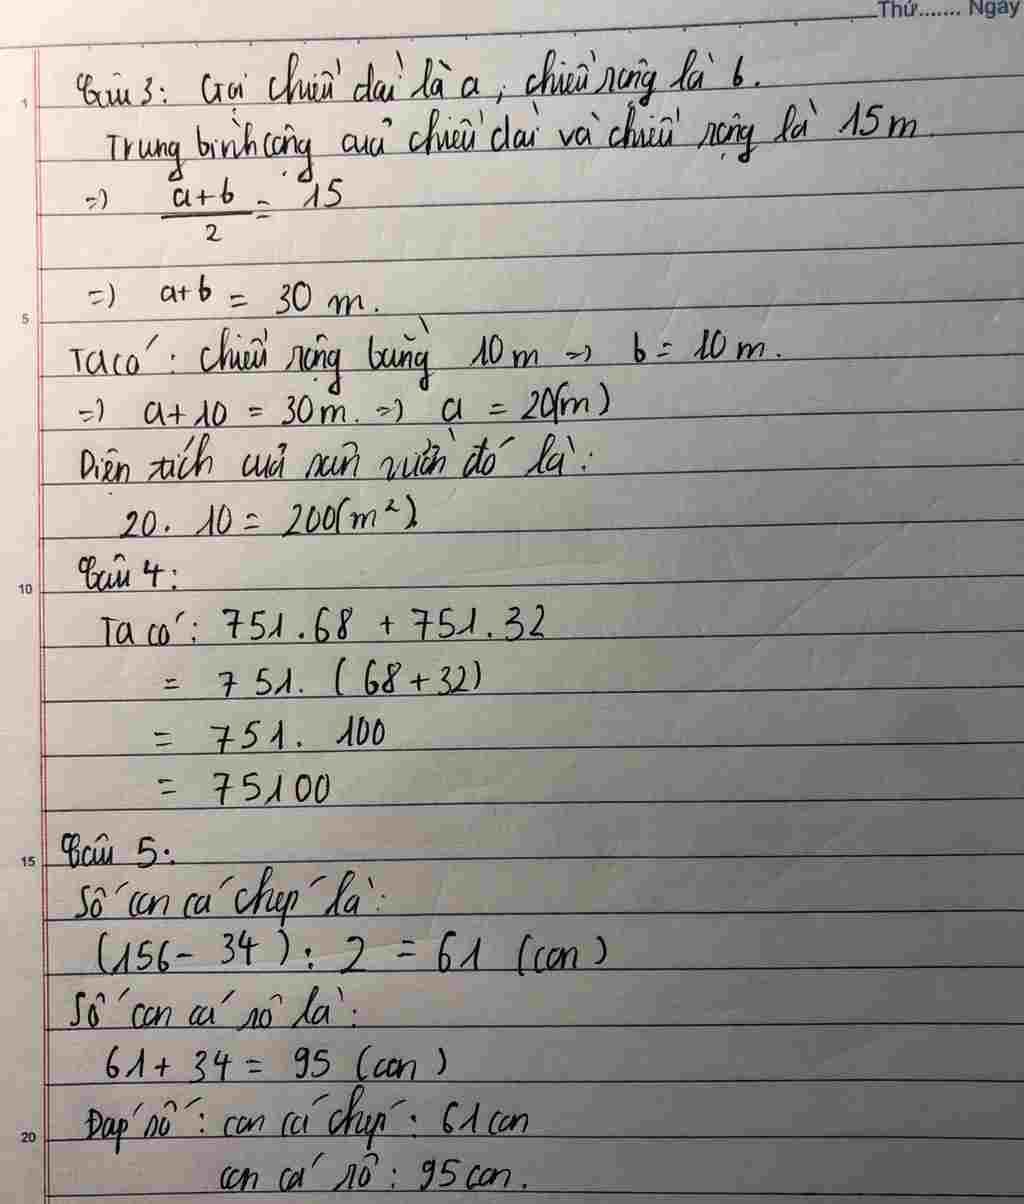 Thứ....... Ngày
1
Câu 3: Gọi chiều dài là a, chiều rộng là b.
Trung bình cộng của chiều dài và chiều rộng là 15m
=) a+b/2 = 15
5
=) a+b = 30 m.
Ta có: chiều rộng bằng 10m => b = 10m.
=) a+10 = 30m. =) a = 20(m)
Diện tích của sân vườn đó là:
20. 10 = 200(m²).
10
Câu 4:
Ta có: 751.68 + 751.32
= 751. (68+32)
= 751. 100
= 75100
15
Câu 5:
Số con cá chép là:
(156- 34) : 2 = 61 (con)
Số con cá rô là:
61+ 34 = 95 (con)
20
Đáp số: con cá chép: 61 con
con cá rô: 95 con.